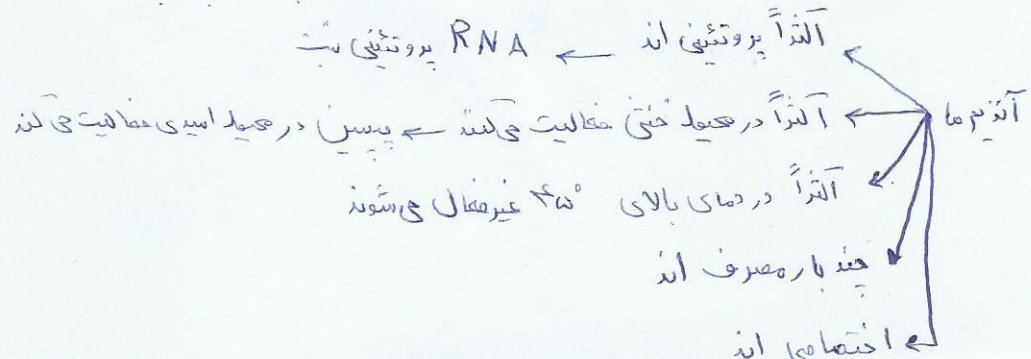 آنزیم ها
← اکثراً پروتئینی اند ← RNA پروتئینی نیست
← اکثراً در محیط خنثی فعالیت می‌کنند ← پپسین در محیط اسیدی فعالیت می‌کند
← اکثراً در دمای بالای ۴۵° غیرفعال می‌شوند
← چند بار مصرف اند
← اختصاصی اند